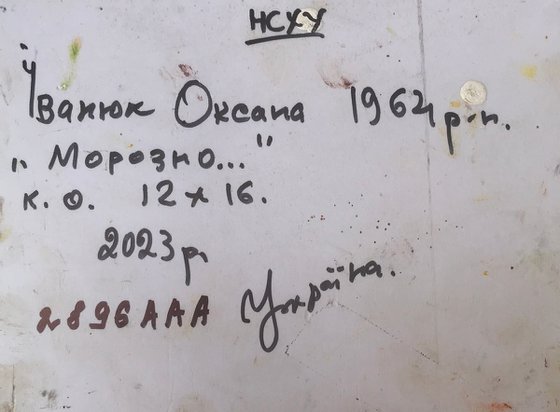 НСХУ
Іванюк Оксана 1964 р.н.
„Морозно..."
к.о. 12х16.
2023р.
2896ААА Україна.